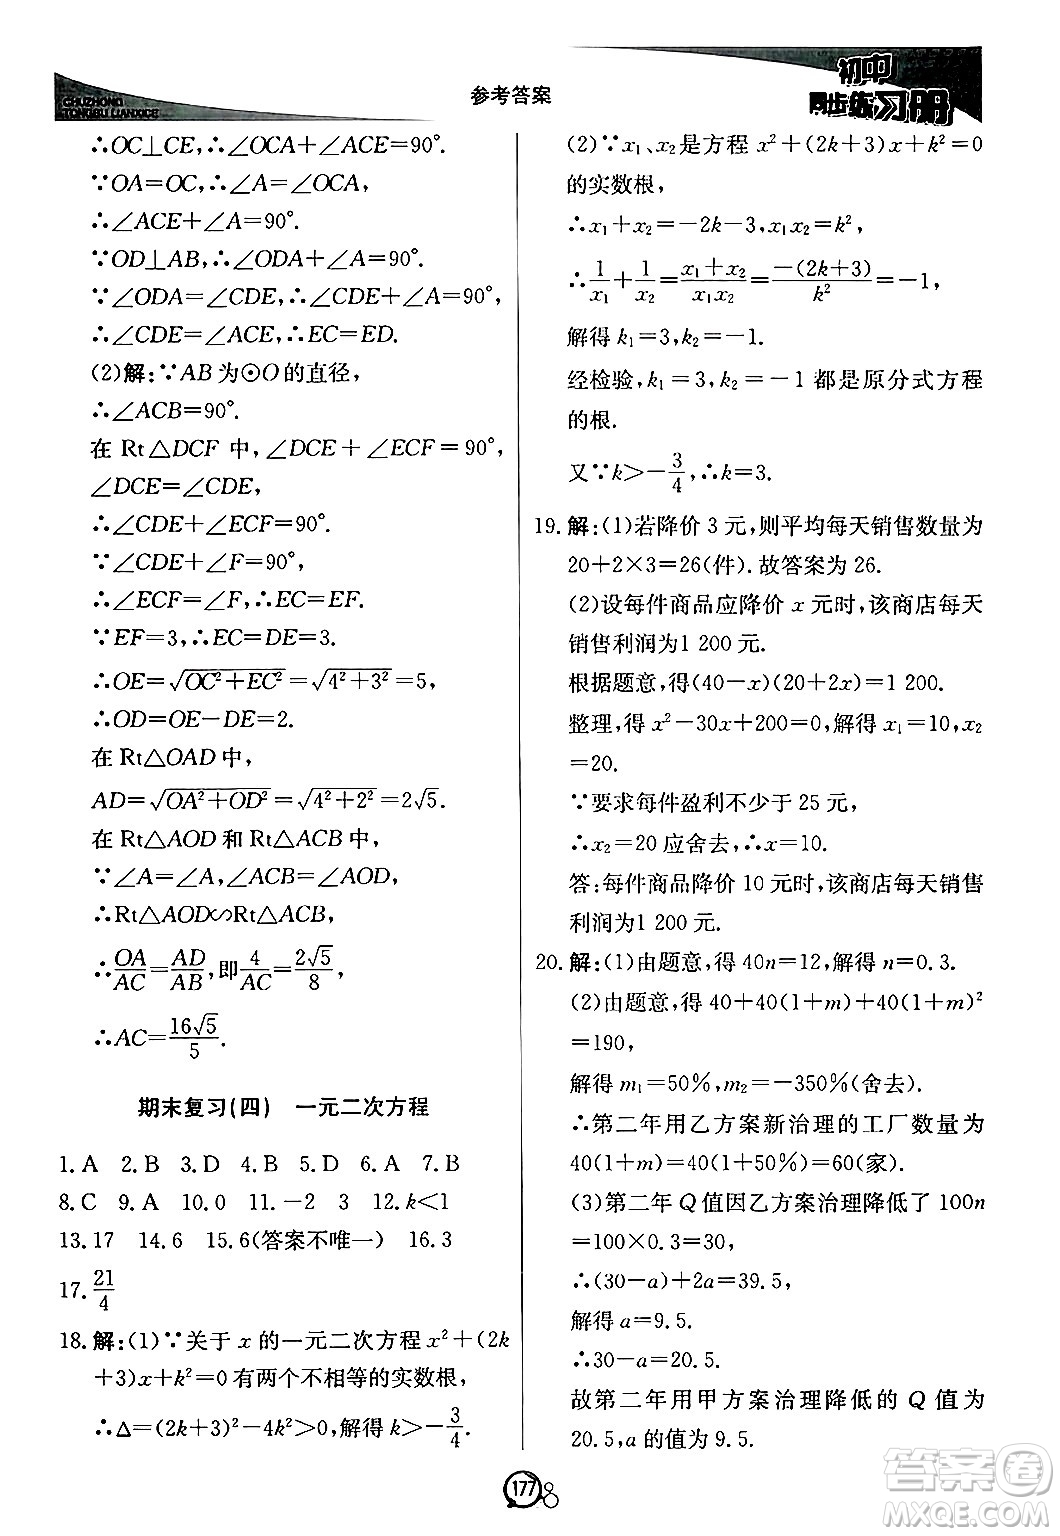 参考答案
初中
同步练习册
CHUZHONG
TONGBU LIANXICE
∴OC⊥CE,∴∠OCA+∠ACE=90°.
∵OA=OC,∴∠A=∠OCA,
∴∠ACE+∠A=90°.
∵OD⊥AB,∴∠ODA+∠A=90°.
∵∠ODA=∠CDE,∴∠CDE+∠A=90°,
∴∠CDE=∠ACE,∴EC=ED.
(2)解:∵AB为⊙O的直径,
∴∠ACB=90°.
在 Rt△DCF 中,∠DCE+∠ECF=90°,
∠DCE=∠CDE,
∴∠CDE+∠ECF=90°.
∵∠CDE+∠F=90°,
∴∠ECF=∠F,∴EC=EF.
∵EF=3,∴EC=DE=3.
∴OE=√(OC²+EC²)=√(4²+3²)=5,
∴OD=OE-DE=2.
在 Rt△OAD 中,
AD=√(OA²+OD²)=√(4²+2²)=2√5.
在 Rt△AOD 和 Rt△ACB 中,
∵∠A=∠A,∠ACB=∠AOD,
∴Rt△AOD∽Rt△ACB,
∴OA/AC=AD/AB,即4/AC=2√5/8,
∴AC=16√5/5.
期末复习(四) 一元二次方程
1.A 2.B 3.D 4.B 5.D 6.A 7.B
8.C 9.A 10.0 11.-2 3 12.k<1
13.17 14.6 15.6(答案不唯一) 16.3
17.21/4
18.解:(1)∵关于 x 的一元二次方程 x²+(2k
+3)x+k²=0 有两个不相等的实数根,
∴Δ=(2k+3)²-4k²>0,解得 k>-3/4.
(2)∵x₁、x₂是方程 x²+(2k+3)x+k²=0
的实数根,
∴x₁+x₂=-2k-3,x₁x₂=k²,
∴1/x₁+1/x₂=(x₁+x₂)/(x₁x₂)=-(2k+3)/k²=-1,
解得 k₁=3,k₂=-1.
经检验,k₁=3,k₂=-1 都是原分式方程
的根.
又∵k>-3/4,∴k=3.
19.解:(1)若降价 3 元,则平均每天销售数量为
20+2×3=26(件).故答案为 26.
(2)设每件商品应降价 x 元时,该商店每天
销售利润为1 200 元.
根据题意,得(40-x)(20+2x)=1 200.
整理,得 x²-30x+200=0,解得 x₁=10,x₂
=20.
∵要求每件盈利不少于 25 元,
∴x₂=20 应舍去,∴x=10.
答:每件商品降价 10 元时,该商店每天销售
利润为1 200 元.
20.解:(1)由题意,得 40n=12,解得 n=0.3.
(2)由题意,得 40+40(1+m)+40(1+m)²
=190,
解得 m₁=50%,m₂=-350%(舍去).
∴第二年用乙方案新治理的工厂数量为
40(1+m)=40(1+50%)=60(家).
(3)第二年 Q 值因乙方案治理降低了 100n
=100×0.3=30,
∴(30-a)+2a=39.5,
解得 a=9.5.
∴30-a=20.5.
故第二年用甲方案治理降低的 Q 值为
20.5,a 的值为 9.5.
177
答案卷
MXQE.COM